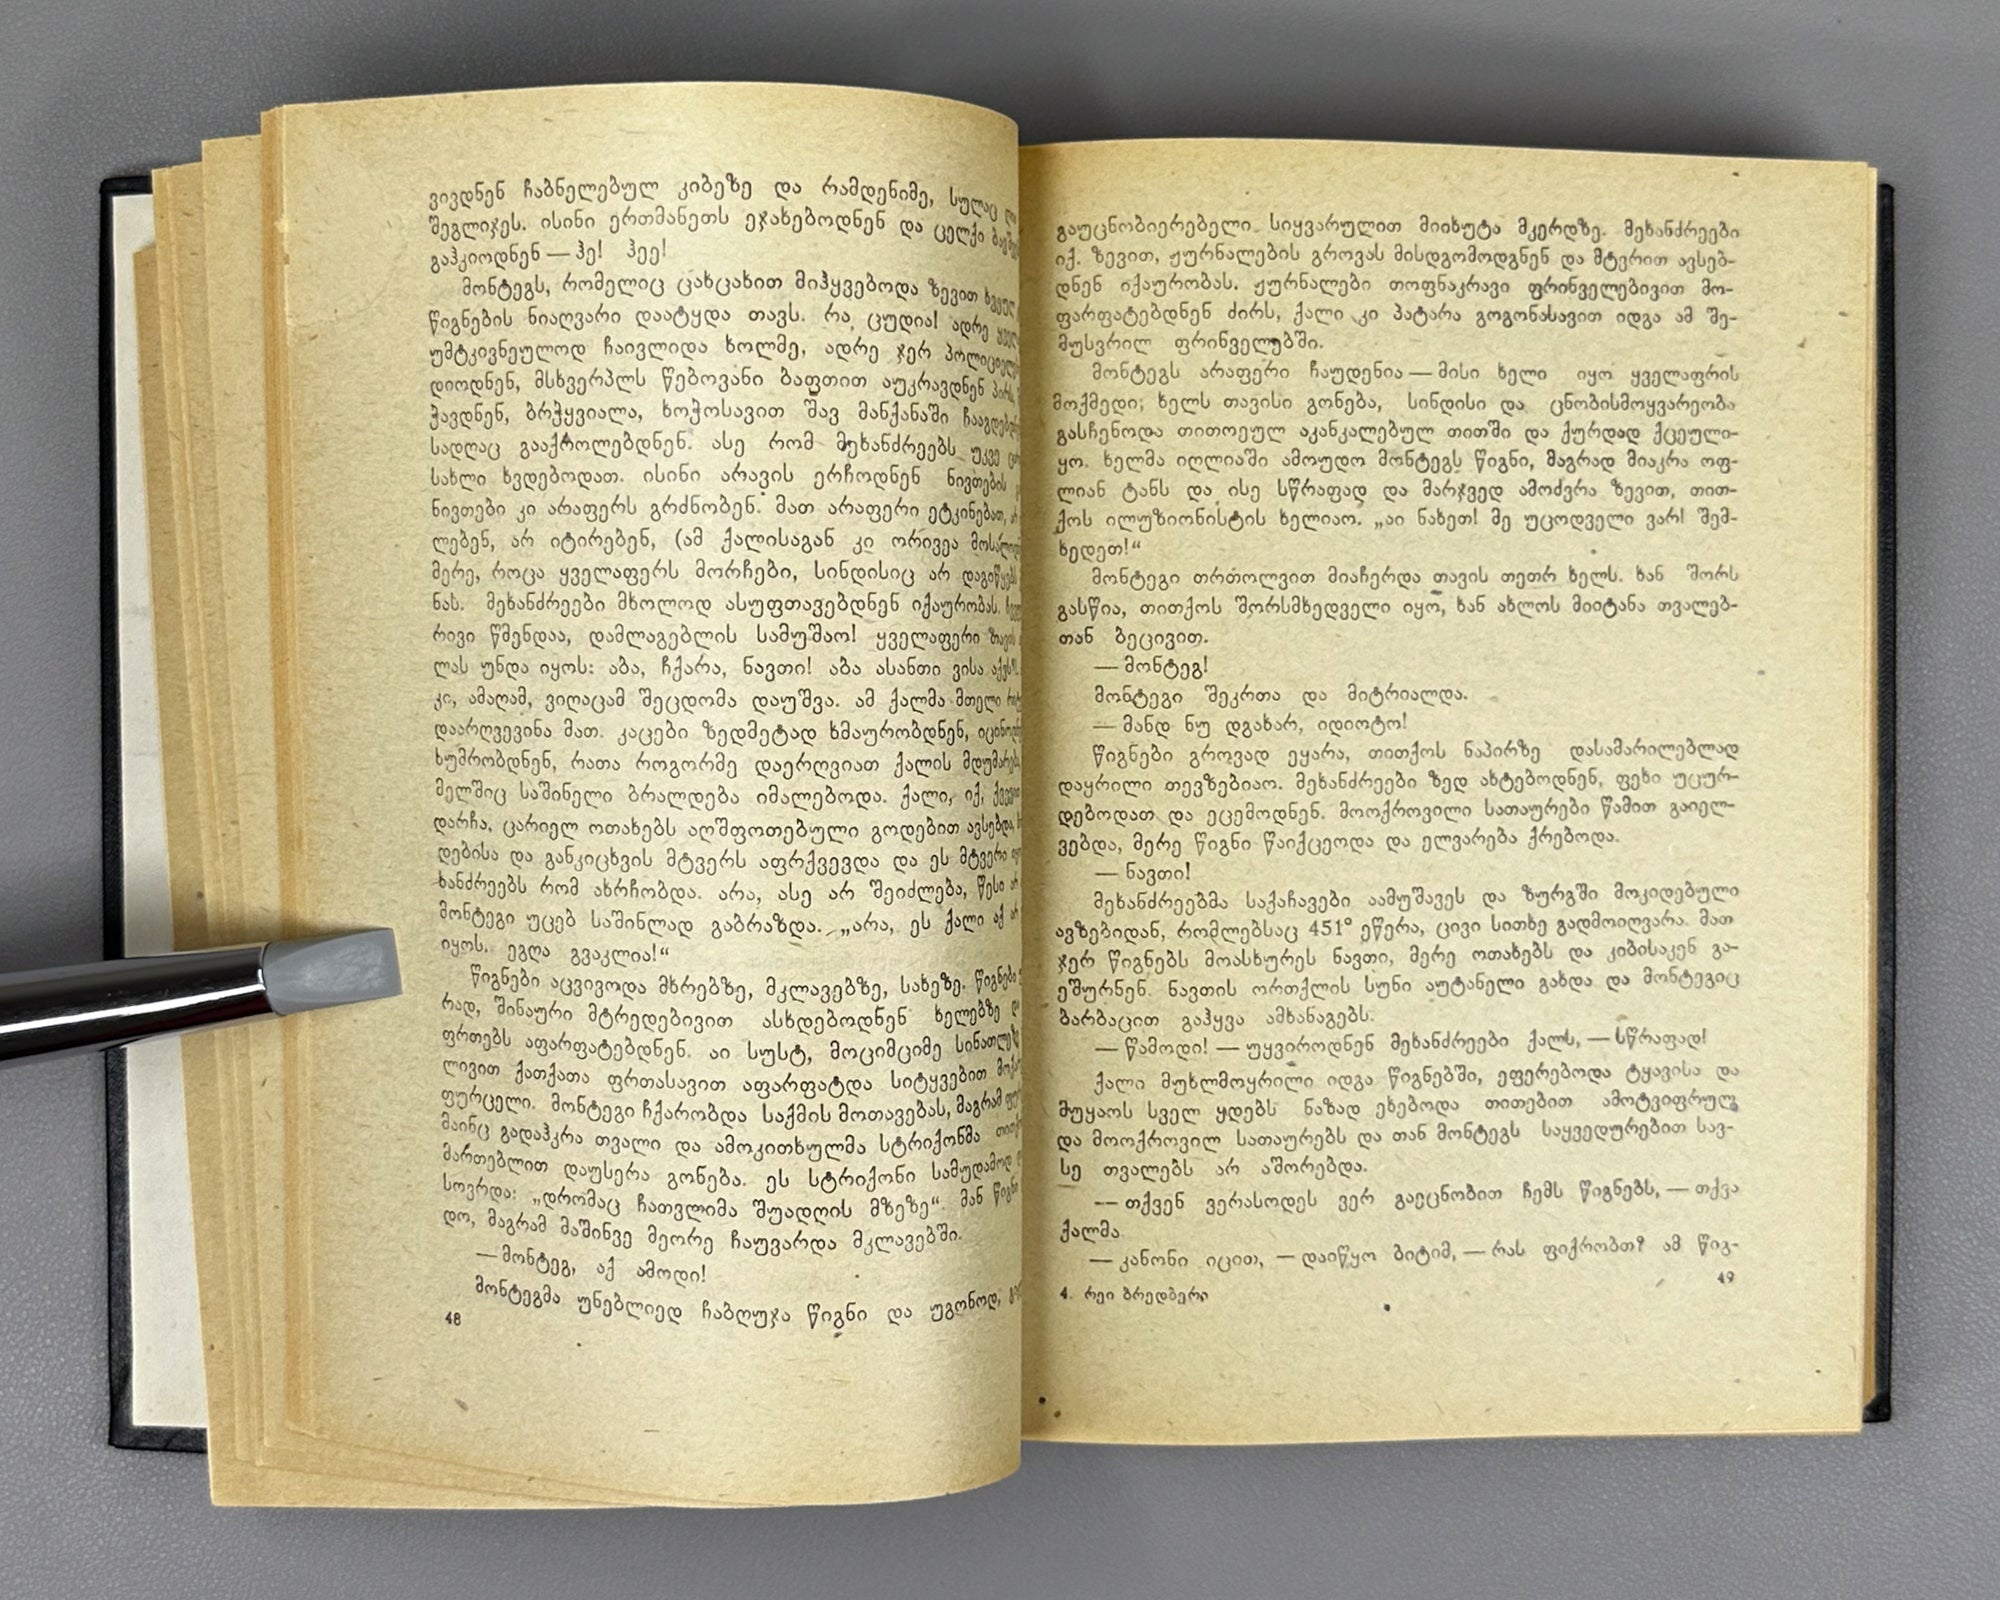 ვივდნენ ჩაბნელებულ კიბეზე და რამდენიმე, სულაც
შეგლიჯეს. ისინი ერთმანეთს ეჯახებოდნენ და ცელქი
გაჰკიოდნენ — ჰე! ჰეე!
მონტეგს, რომელიც ცახცახით მიჰყვებოდა ზევით
წიგნების ნიაღვარი დაატყდა თავს. რა ცუდია! ადრე
უმტკივნეულოდ ჩაივლიდა ხოლმე, ადრე ჯერ
დიოდნენ, მსხვერპლს წებოვანი ბაფთით აუკრავდნენ პირს,
ჭავდნენ, ბრჭყვიალა, ხოჭოსავით შავ მანქანაში
სადღაც გააქროლებდნენ. ასე რომ მეხანძრეებს უკვე
სახლი ხვდებოდათ. ისინი არავის ერჩოდნენ ნივთების
ნივთები კი არაფერს გრძნობენ. მათ არაფერი ეტკინებათ, არ
ლებენ, არ იტირებენ, (ამ ქალისაგან კი ორივეა
მერე, როცა ყველაფერს მორჩები, სინდისიც არ
ნას. მეხანძრეები მხოლოდ ასუფთავებდნენ იქაურობას.
რივი წმენდაა, დამლაგებლის სამუშაო! ყველაფერი თავის
ლას უნდა იყოს: აბა, ჩქარა, ნავთი! აბა ასანთი ვისა აქვს?.
კი, ამაღამ, ვიღაცამ შეცდომა დაუშვა. ამ ქალმა მთელი
დაარღვევინა მათ. კაცები ზედმეტად ხმაურობდნენ,
ხუმრობდნენ, რათა როგორმე დაერღვიათ ქალის
მელშიც საშინელი ბრალდება იმალებოდა. ქალი, იქ, ქვევით
დარჩა, ცარიელ ოთახებს აღშფოთებული გოდებით ავსებდა,
დებისა და განკიცხვის მტვერს აფრქვევდა და ეს მტვერი
ხანძრეებს რომ ახრჩობდა. არა, ასე არ შეიძლება, წესი არ
მონტეგი უცებ საშინლად გაბრაზდა. „არა, ეს ქალი აქ არ
იყოს. ეგღა გვაკლია!“
წიგნები აცვივოდა მხრებზე, მკლავებზე, სახეზე. წიგნები
რად, შინაური მტრედებივით ასხდებოდნენ ხელებზე
ფრთებს აფარფატებდნენ. აი სუსტ, მოციმციმე სინათლეზე
ლივით ქათქათა ფრთასავით აფარფატდა სიტყვებით
ფურცელი. მონტეგი ჩქარობდა საქმის მოთავებას, მაგრამ
მაინც გადაჰკრა თვალი და ამოკითხულმა სტრიქონმა
მართებლით დაუსერა გონება. ეს სტრიქონი სამუდამოდ
სოვრდა: „დრომაც ჩათვლიმა შუადღის მზეზე“. მან წიგნი
დო, მაგრამ მაშინვე მეორე ჩაუვარდა მკლავებში.
— მონტეგ, აქ ამოდი!
მონტეგმა უნებლიედ ჩაბღუჯა წიგნი და უგონოდ,
48
გაუცნობიერებელი სიყვარულით მიიხუტა მკერდზე. მეხანძრეები
იქ. ზევით, ჟურნალების გროვას მისდგომოდგნენ და მტვრით ავსებ-
დნენ იქაურობას. ჟურნალები თოფნაკრავი ფრინველებივით მო-
ფარფატებდნენ ძირს, ქალი კი პატარა გოგონასავით იდგა ამ შე-
მუსვრილ ფრინველებში.
მონტეგს არაფერი ჩაუდენია — მისი ხელი იყო ყველაფრის
მოქმედი; ხელს თავისი გონება, სინდისი და ცნობისმოყვარეობა
გასჩენოდა თითოეულ აკანკალებულ თითში და ქურდად ქცეული-
ყო. ხელმა იღლიაში ამოუდო მონტეგს წიგნი, მაგრად მიაკრა ოფ-
ლიან ტანს და ისე სწრაფად და მარჯვედ ამოძვრა ზევით, თით-
ქოს ილუზიონისტის ხელიაო. „აი ნახეთ! მე უცოდველი ვარ! შემ-
ხედეთ!“
მონტეგი თრთოლვით მიაჩერდა თავის თეთრ ხელს. ხან შორს
გასწია, თითქოს შორსმხედველი იყო, ხან ახლოს მიიტანა თვალებ-
თან ბეცივით.
— მონტეგ!
მონტეგი შეკრთა და მიტრიალდა.
— მანდ ნუ დგახარ, იდიოტო!
წიგნები გროვად ეყარა, თითქოს ნაპირზე დასამარილებლად
დაყრილი თევზებიაო. მეხანძრეები ზედ ახტებოდნენ, ფეხი უცურ-
დებოდათ და ეცემოდნენ. მოოქროვილი სათაურები წამით გაიელ-
ვებდა, მერე წიგნი წაიქცეოდა და ელვარება ქრებოდა.
— ნავთი!
მეხანძრეებმა საქაჩავები აამუშავეს და ზურგში მოკიდებული
ავზებიდან, რომლებსაც 451° ეწერა, ცივი სითხე გადმოიღვარა. მათ
ჯერ წიგნებს მოასხურეს ნავთი, მერე ოთახებს და კიბისაკენ გა-
ეშურნენ. ნავთის ორთქლის სუნი აუტანელი გახდა და მონტეგიც
ბარბაცით გაჰყვა ამხანაგებს.
— წამოდი! — უყვიროდნენ მეხანძრეები ქალს, — სწრაფად!
ქალი მუხლმოყრილი იდგა წიგნებში, ეფერებოდა ტყავისა და
მუყაოს სველ ყდებს ნაზად ეხებოდა თითებით ამოტვიფრულ
და მოოქროვილ სათაურებს და თან მონტეგს საყვედურებით სავ-
სე თვალებს არ აშორებდა.
— თქვენ ვერასოდეს ვერ გაეცნობით ჩემს წიგნებს, — თქვა
ქალმა
— კანონი იცით, — დაიწყო ბიტიმ, — რას ფიქრობთ? ამ წიგ-
49
4. რეი ბრედბერი